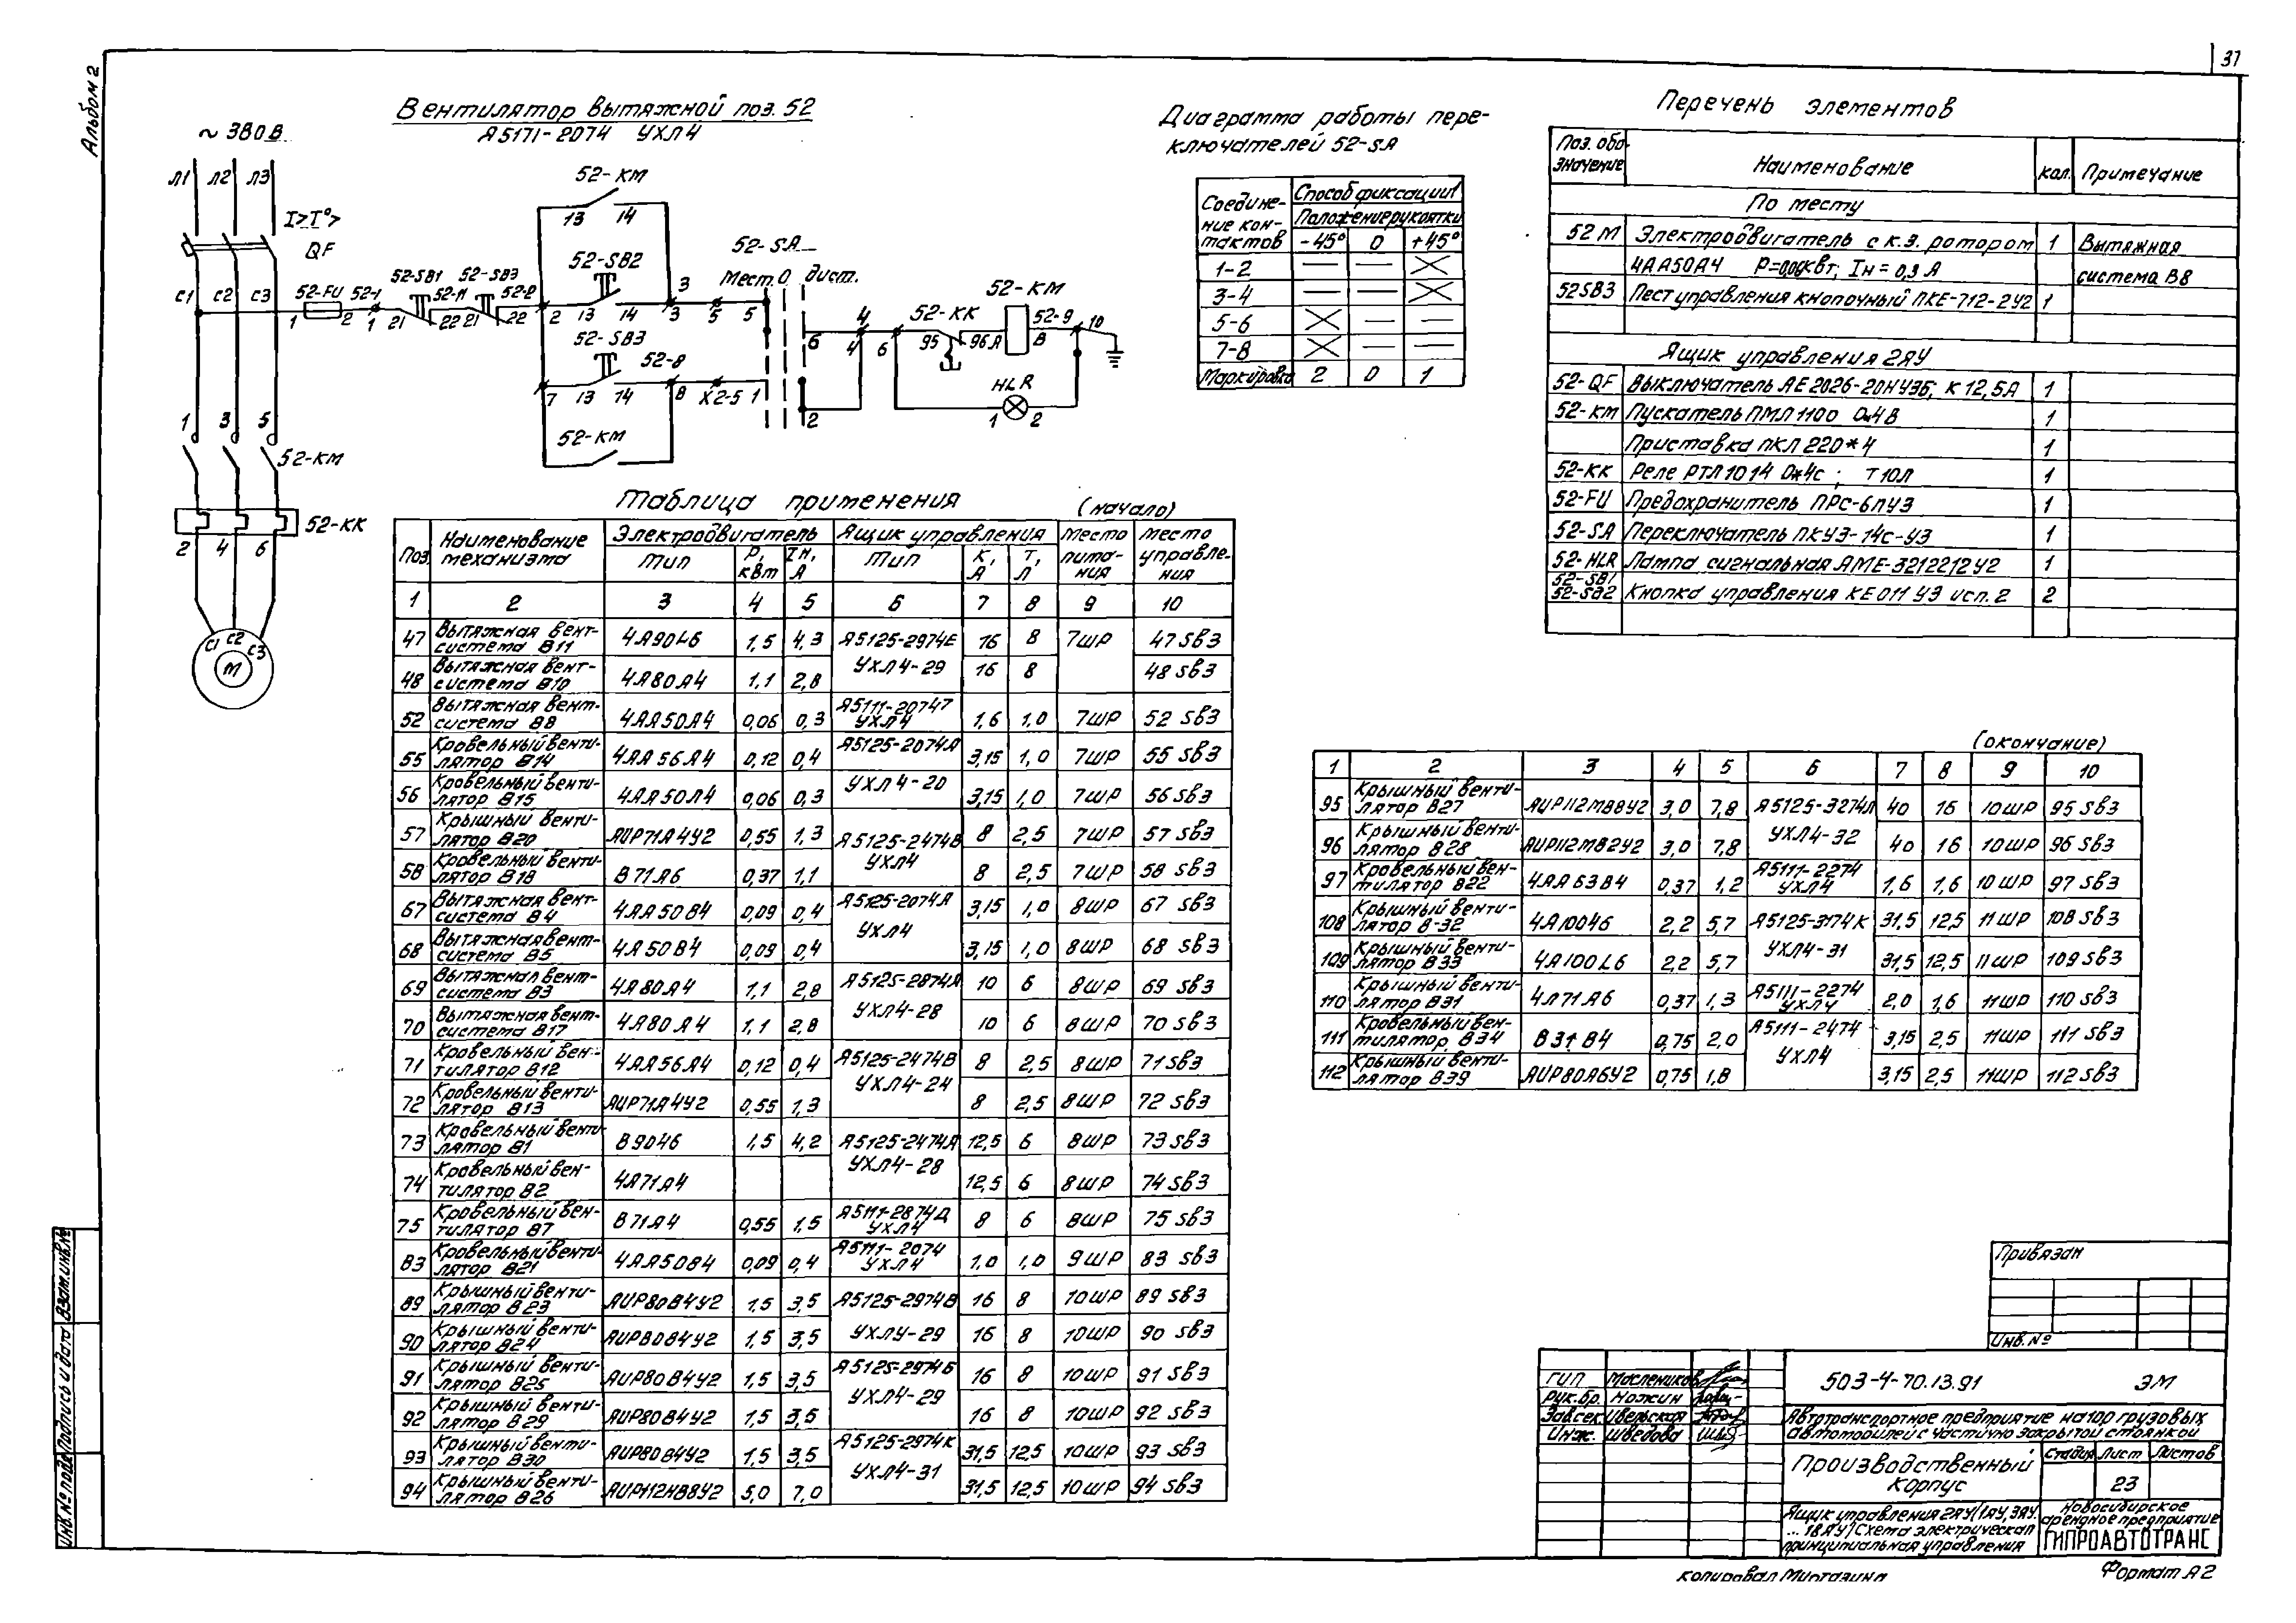 37
Альбом 2
Вентилятор вытяжной поз. 52
Я5171-2074 УХЛ4
~ 380 В
Л1 Л2 Л3
I> I°>
QF
С1 С2 С3
52-FU 52-1 52-SB1 52-11 52-SB3 52-2
1 2 1 21 22 21 22 2
52-КМ
13 14
52-SB2
13 14 3 3 5 5
52-SB3 52-8
7 13 14 8 Х2-5 1
52-КМ
52-SA
Мест. 0 Дист.
6 4 4 6 2
52-КК
95 96 А
52-КМ
52-9 10
В
HLR
1 2
1 3 5
52-КМ
52-КК
2 4 6
С1 С2 С3
М
Диаграмма работы пере-
ключателей 52-SA
Соедине-
ние кон-
тактов
Способ фиксации
Положение рукоятки
-45° 0 +45°
1-2 — — ✕
3-4 — — ✕
5-6 ✕ — —
7-8 ✕ — —
Маркировка 2 0 1
Перечень элементов
Поз. обо-
значение Наименование кол. Примечание
По месту
52 М Электродвигатель с к.з. ротором 1 Вытяжная
4АА50А4 Р=0,06кВт; Iн = 0,3 А система В8
52SB3 Пост управления кнопочный ПКЕ-712-2У2 1
Ящик управления 2ЯУ
52-QF Выключатель АЕ 2026-20НУ3Б, К 12,5А 1
52-КМ Пускатель ПМЛ 1100 0*4В 1
Приставка ПКЛ 220*4 1
52-КК Реле РТЛ 1014 0*4С ; Т 10Л 1
52-FU Предохранитель ПРС-6ПУ3 1
52-SA Переключатель ПКУ3-14С-У3 1
52-HLR Лампа сигнальная АМЕ-3212212У2 1
52-SB1
52-SB2 Кнопка управления КЕ011 У3 исп. 2 2
Таблица применения (начало)
Поз. Наименование механизма Электродвигатель Ящик управления Место питания Место управления
Тип Р, кВт Iн, А Тип К, А Т, Л
1 2 3 4 5 6 7 8 9 10
47 Вытяжная вент-система В11 4А90L6 1,5 4,3 Я5125-2974Е 16 8 7ШР 47 SB3
48 Вытяжная вент-система В10 4А80А4 1,1 2,8 УХЛ4-29 16 8 48 SB3
52 Вытяжная вент-система В8 4АА50А4 0,06 0,3 Я5111-2074 УХЛ4 1,6 1,0 7ШР 52 SB3
55 Кровельный венти-лятор В14 4АА56А4 0,12 0,4 Я5125-2074А 3,15 1,0 7ШР 55 SB3
56 Кровельный венти-лятор В15 4АА50А4 0,06 0,3 УХЛ4-20 3,15 1,0 7ШР 56 SB3
57 Крышный венти-лятор В20 АИР71А4У2 0,55 1,3 Я5125-2474В 8 2,5 7ШР 57 SB3
58 Кровельный венти-лятор В18 В71А6 0,37 1,1 УХЛ4 8 2,5 7ШР 58 SB3
67 Вытяжная вент-система В4 4АА50В4 0,09 0,4 Я5125-2074А 3,15 1,0 8ШР 67 SB3
68 Вытяжная вент-система В5 4А50В4 0,09 0,4 УХЛ4 3,15 1,0 8ШР 68 SB3
69 Вытяжная вент-система В3 4А80А4 1,1 2,8 Я5125-2874А 10 6 8ШР 69 SB3
70 Вытяжная вент-система В17 4А80А4 1,1 2,8 УХЛ4-28 10 6 8ШР 70 SB3
71 Кровельный вен-тилятор В12 4АА56А4 0,12 0,4 Я5125-2474В 8 2,5 8ШР 71 SB3
72 Кровельный венти-лятор В13 АИР71А4У2 0,55 1,3 УХЛ4-24 8 2,5 8ШР 72 SB3
73 Кровельный венти-лятор В1 В90L6 1,5 4,2 Я5125-2474А 12,5 6 8ШР 73 SB3
74 Кровельный вен-тилятор В2 4А71А4 УХЛ4-28 12,5 6 8ШР 74 SB3
75 Кровельный вен-тилятор В7 В71А4 0,55 1,5 Я5111-2874Д УХЛ4 8 6 8ШР 75 SB3
83 Кровельный венти-лятор В21 4АА50В4 0,09 0,4 Я5111-2074 УХЛ4 1,0 1,0 9ШР 83 SB3
89 Крышный венти-лятор В23 АИР80В4У2 1,5 3,5 Я5125-2974В 16 8 10ШР 89 SB3
90 Крышный венти-лятор В24 АИР80В4У2 1,5 3,5 УХЛ4-29 16 8 10ШР 90 SB3
91 Крышный венти-лятор В25 АИР80В4У2 1,5 3,5 Я5125-2974Б 16 8 10ШР 91 SB3
92 Крышный венти-лятор В29 АИР80В4У2 1,5 3,5 УХЛ4-29 16 8 10ШР 92 SB3
93 Крышный венти-лятор В30 АИР80В4У2 1,5 3,5 Я5125-2974К 31,5 12,5 10ШР 93 SB3
94 Крышный венти-лятор В26 АИР112МВ8У2 5,0 7,0 УХЛ4-31 31,5 12,5 10ШР 94 SB3
(окончание)
1 2 3 4 5 6 7 8 9 10
95 Крышный венти-лятор В27 АИР112МВ8У2 3,0 7,8 Я5125-3274Л 40 16 10ШР 95 SB3
96 Крышный венти-лятор В28 АИР112МВ2У2 3,0 7,8 УХЛ4-32 40 16 10ШР 96 SB3
97 Кровельный вен-тилятор В22 4АА63В4 0,37 1,2 Я5111-2274 УХЛ4 1,6 1,6 10ШР 97 SB3
108 Крышный венти-лятор В-32 4А100L6 2,2 5,7 Я5125-3174К 31,5 12,5 11ШР 108 SB3
109 Крышный венти-лятор В33 4А100L6 2,2 5,7 УХЛ4-31 31,5 12,5 11ШР 109 SB3
110 Крышный венти-лятор В31 4А71А6 0,37 1,3 Я5111-2274 УХЛ4 2,0 1,6 11ШР 110 SB3
111 Кровельный вен-тилятор В34 В31В4 0,75 2,0 Я5111-2474 3,15 2,5 11ШР 111 SB3
112 Крышный венти-лятор В39 АИР80А6У2 0,75 1,8 УХЛ4 3,15 2,5 11ШР 112 SB3
Привязан
Инв.№
ГИП Маслеников
Рук.бр. Ножкин
Зав.сек. Цвельская
Инж. Шведова
503-4-70.13.91 ЭМ
Автотранспортное предприятие на 10 грузовых
автомобилей с частично закрытой стоянкой
Производственный
корпус
Стадия Лист Листов
23
Ящик управления 2ЯУ/1ЯУ, 3ЯУ
...18ЯУ/Схема электрическая
принципиальная управления
Новосибирское
арендное предприятие
ГИПРОАВТОТРАНС
Копировал Миртазина
Формат А2
Взам.инв.№
Подпись и дата
Инв.№ подл